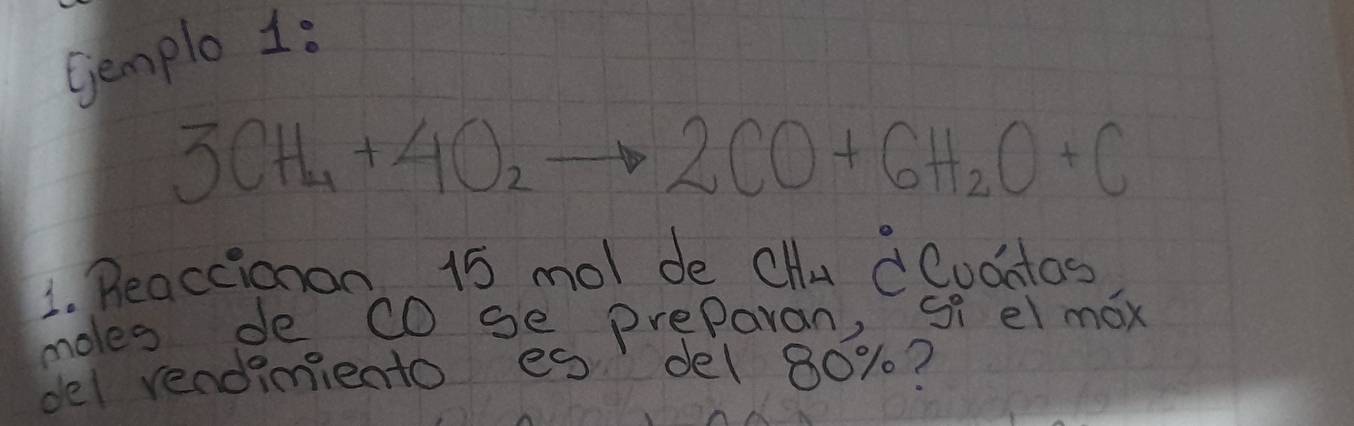 Ejemplo 1:
3CH₄ + 4O₂ → 2CO + 6H₂O + C
1. Reaccionan 15 mol de CH4 ¿Cuántas
moles de CO se preparan, si el máx
del rendimiento es del 80%?